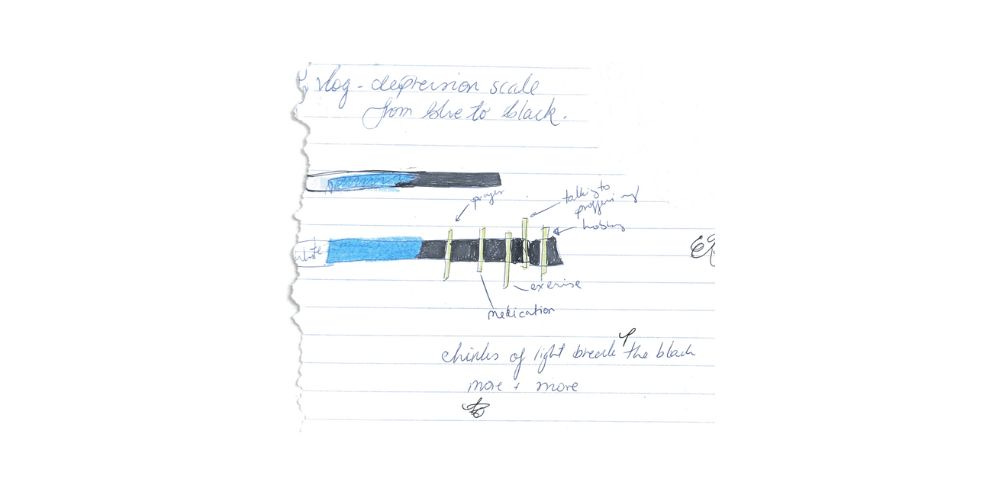 vlog - depression scale
from blue to black.
prayer
talking to
professional
hobby
white
69
exercise
medication
chinks of light break up the black
more + more